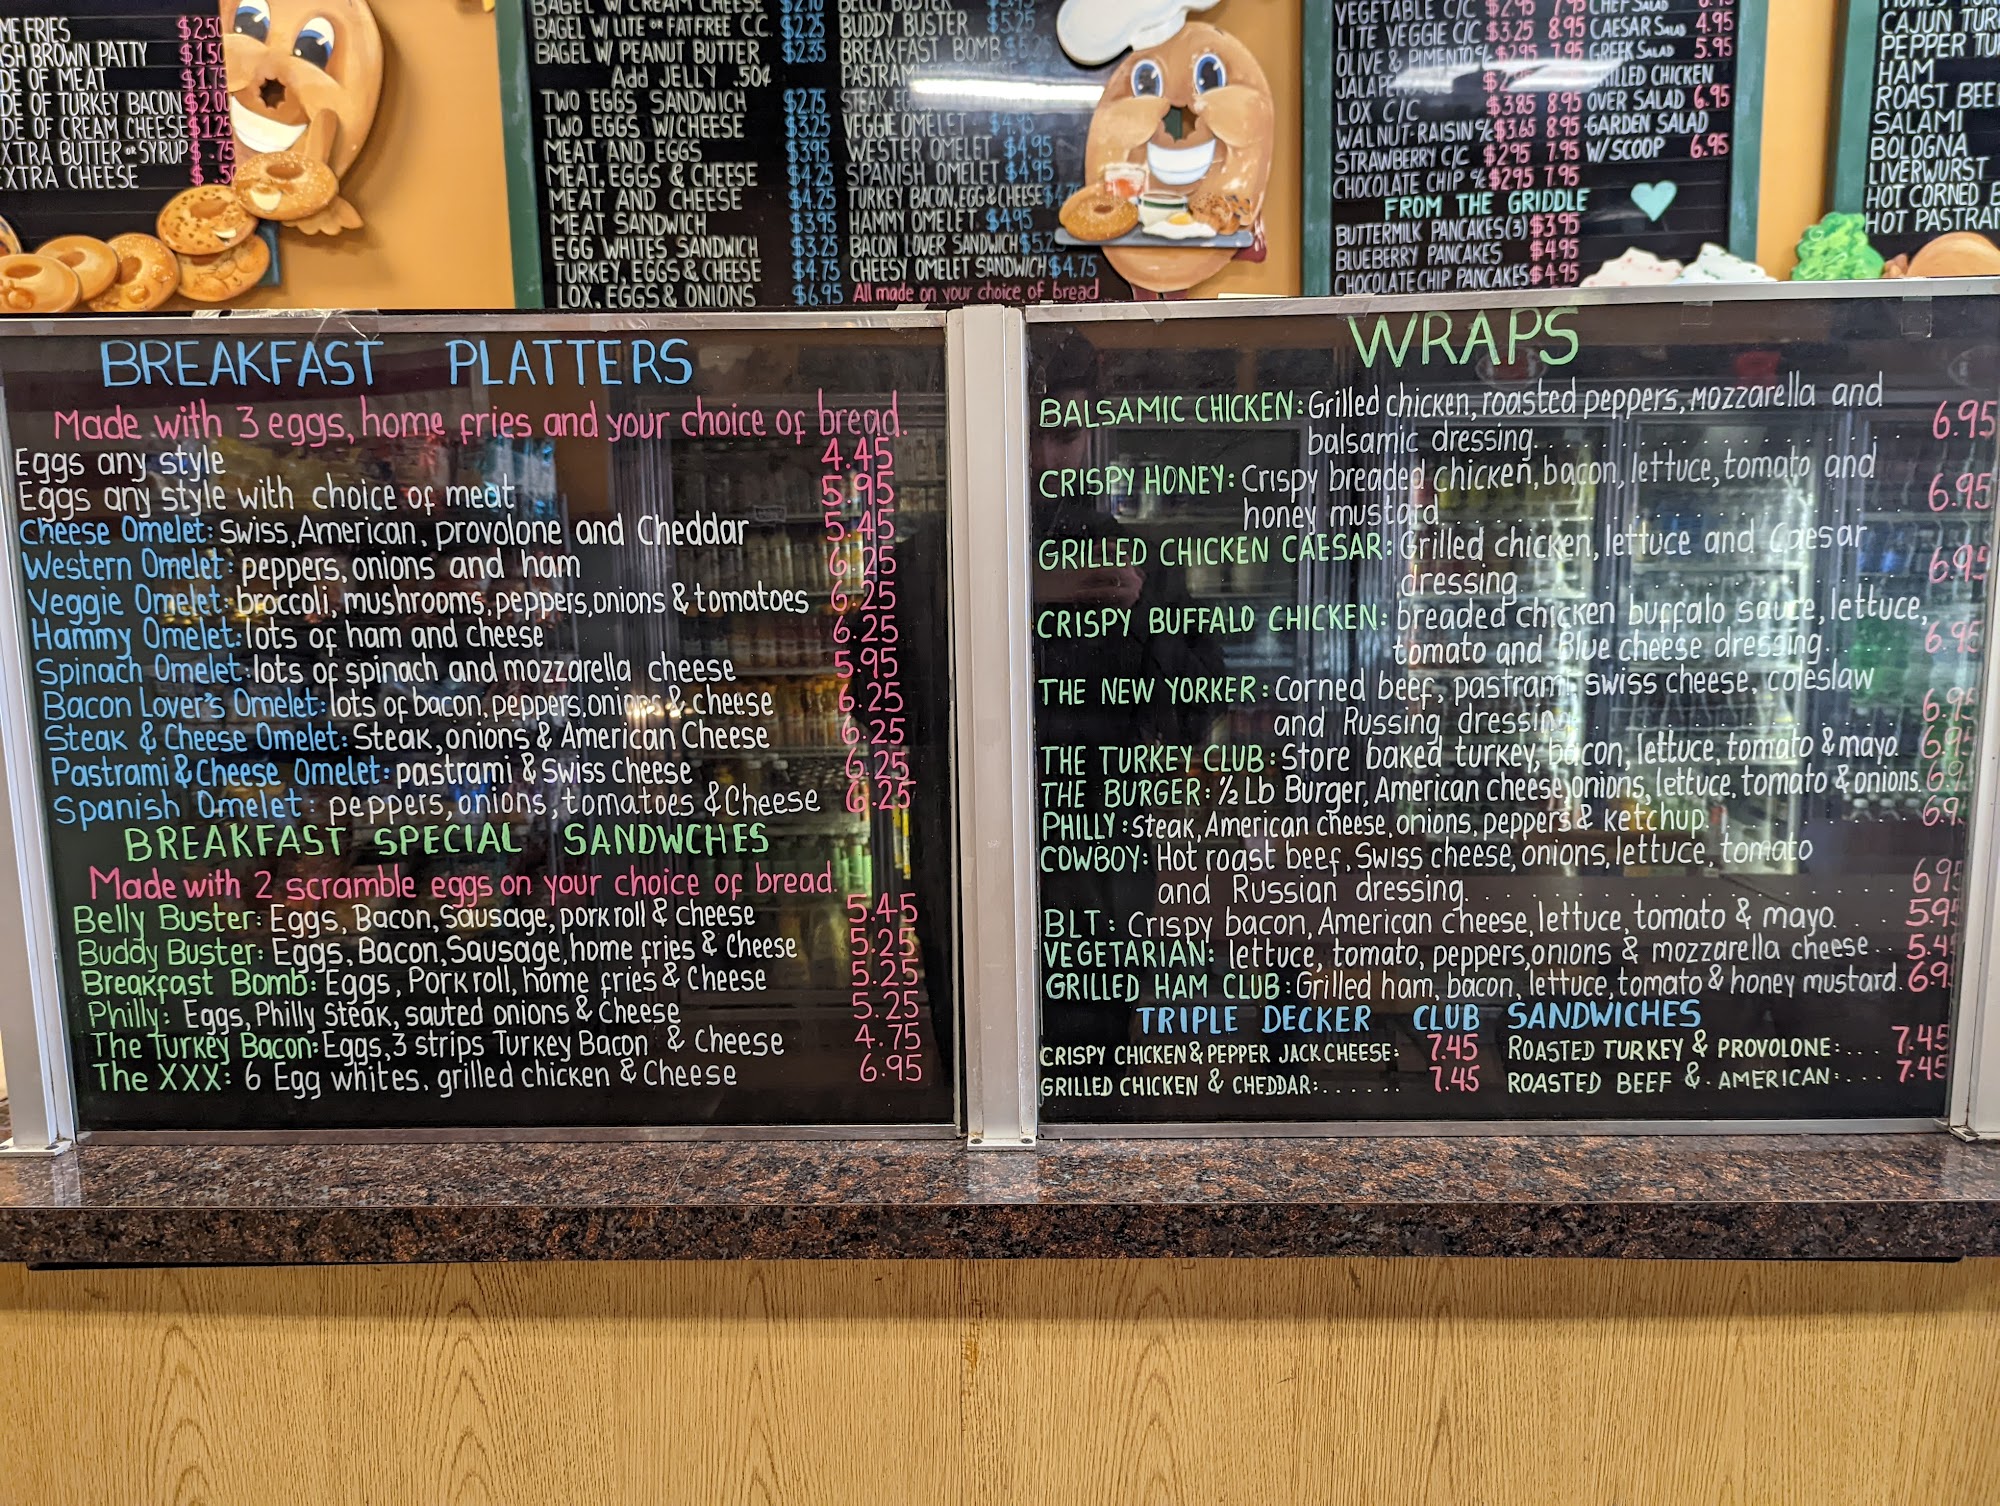 ME FRIES $2.50
SH BROWN PATTY $1.50
DE OF MEAT $1.75
DE OF TURKEY BACON $2.00
DE OF CREAM CHEESE $1.25
XTRA BUTTER OR SYRUP $.75
EXTRA CHEESE $.50
BAGEL W/ CREAM CHEESE $2.10
BAGEL W/ LITE OR FAT FREE C.C. $2.25
BAGEL W/ PEANUT BUTTER $2.35
Add JELLY .50¢
TWO EGGS SANDWICH $2.75
TWO EGGS W/CHEESE $3.25
MEAT AND EGGS $3.95
MEAT, EGGS & CHEESE $4.25
MEAT AND CHEESE $4.25
MEAT SANDWICH $3.95
EGG WHITES SANDWICH $3.25
TURKEY, EGGS & CHEESE $4.75
LOX, EGGS & ONIONS $6.95
BELLY BUSTER
BUDDY BUSTER $5.25
BREAKFAST BOMB
PASTRAMI
STEAK, EG
VEGGIE OMELET $4.95
WESTER OMELET $4.95
SPANISH OMELET $4.95
TURKEY BACON, EGG & CHEESE
HAMMY OMELET $4.95
BACON LOVER SANDWICH $5.2
CHEESY OMELET SANDWICH $4.75
All made on your choice of bread
VEGETABLE C/C $2.95 7.95
LITE VEGGIE C/C $3.25 8.95
OLIVE & PIMENTO C/C $2.95 7.95
JALAPENO
LOX C/C $3.85 8.95
WALNUT-RAISIN C/C $3.65 8.95
STRAWBERRY C/C $2.95 7.95
CHOCOLATE CHIP C/C $2.95 7.95
FROM THE GRIDDLE
BUTTERMILK PANCAKES (3) $3.95
BLUEBERRY PANCAKES $4.95
CHOCOLATE CHIP PANCAKES $4.95
CHEF SALAD
CAESAR SALAD 4.95
GREEK SALAD 5.95
GRILLED CHICKEN
OVER SALAD 6.95
GARDEN SALAD
W/ SCOOP 6.95
CAJUN TUR
PEPPER TU
HAM
ROAST BEE
SALAMI
BOLOGNA
LIVERWURST
HOT CORNED B
HOT PASTRA
BREAKFAST PLATTERS
Made with 3 eggs, home fries and your choice of bread.
Eggs any style 4.45
Eggs any style with choice of meat 5.95
Cheese Omelet: Swiss, American, provolone and Cheddar 5.45
Western Omelet: peppers, onions and ham 6.25
Veggie Omelet: broccoli, mushrooms, peppers, onions & tomatoes 6.25
Hammy Omelet: lots of ham and cheese 6.25
Spinach Omelet: lots of spinach and mozzarella cheese 5.95
Bacon Lover's Omelet: lots of bacon, peppers, onions & cheese 6.25
Steak & Cheese Omelet: Steak, onions & American Cheese 6.25
Pastrami & Cheese Omelet: pastrami & Swiss Cheese 6.25
Spanish Omelet: peppers, onions, tomatoes & Cheese 6.25
BREAKFAST SPECIAL SANDWCHES
Made with 2 scramble eggs on your choice of bread.
Belly Buster: Eggs, Bacon, Sausage, pork roll & cheese 5.45
Buddy Buster: Eggs, Bacon, Sausage, home fries & Cheese 5.25
Breakfast Bomb: Eggs, Pork roll, home fries & Cheese 5.25
Philly: Eggs, Philly Steak, sauted onions & Cheese 5.25
The Turkey Bacon: Eggs, 3 strips Turkey Bacon & Cheese 4.75
The XXX: 6 Egg whites, grilled chicken & Cheese 6.95
WRAPS
BALSAMIC CHICKEN: Grilled chicken, roasted peppers, mozzarella and
balsamic dressing. 6.95
CRISPY HONEY: Crispy breaded chicken, bacon, lettuce, tomato and
honey mustard 6.95
GRILLED CHICKEN CAESAR: Grilled chicken, lettuce and Caesar
dressing 6.95
CRISPY BUFFALO CHICKEN: breaded chicken buffalo sauce, lettuce,
tomato and Blue cheese dressing. 6.95
THE NEW YORKER: Corned beef, pastrami, swiss cheese, coleslaw
and Russing dressing 6.95
THE TURKEY CLUB: Store baked turkey, bacon, lettuce, tomato & mayo. 6.95
THE BURGER: ½ Lb Burger, American cheese, onions, lettuce, tomato & onions. 6.9
PHILLY: Steak, American cheese, onions, peppers & ketchup. 6.9
COWBOY: Hot roast beef, Swiss cheese, onions, lettuce, tomato
and Russian dressing. 6.95
BLT: Crispy bacon, American cheese, lettuce, tomato & mayo. 5.95
VEGETARIAN: lettuce, tomato, peppers, onions & mozzarella cheese.. 5.4
GRILLED HAM CLUB: Grilled ham, bacon, lettuce, tomato & honey mustard. 6.9
TRIPLE DECKER CLUB SANDWICHES
CRISPY CHICKEN & PEPPER JACK CHEESE: 7.45 ROASTED TURKEY & PROVOLONE:... 7.45
GRILLED CHICKEN & CHEDDAR:....... 7.45 ROASTED BEEF & AMERICAN:... 7.45